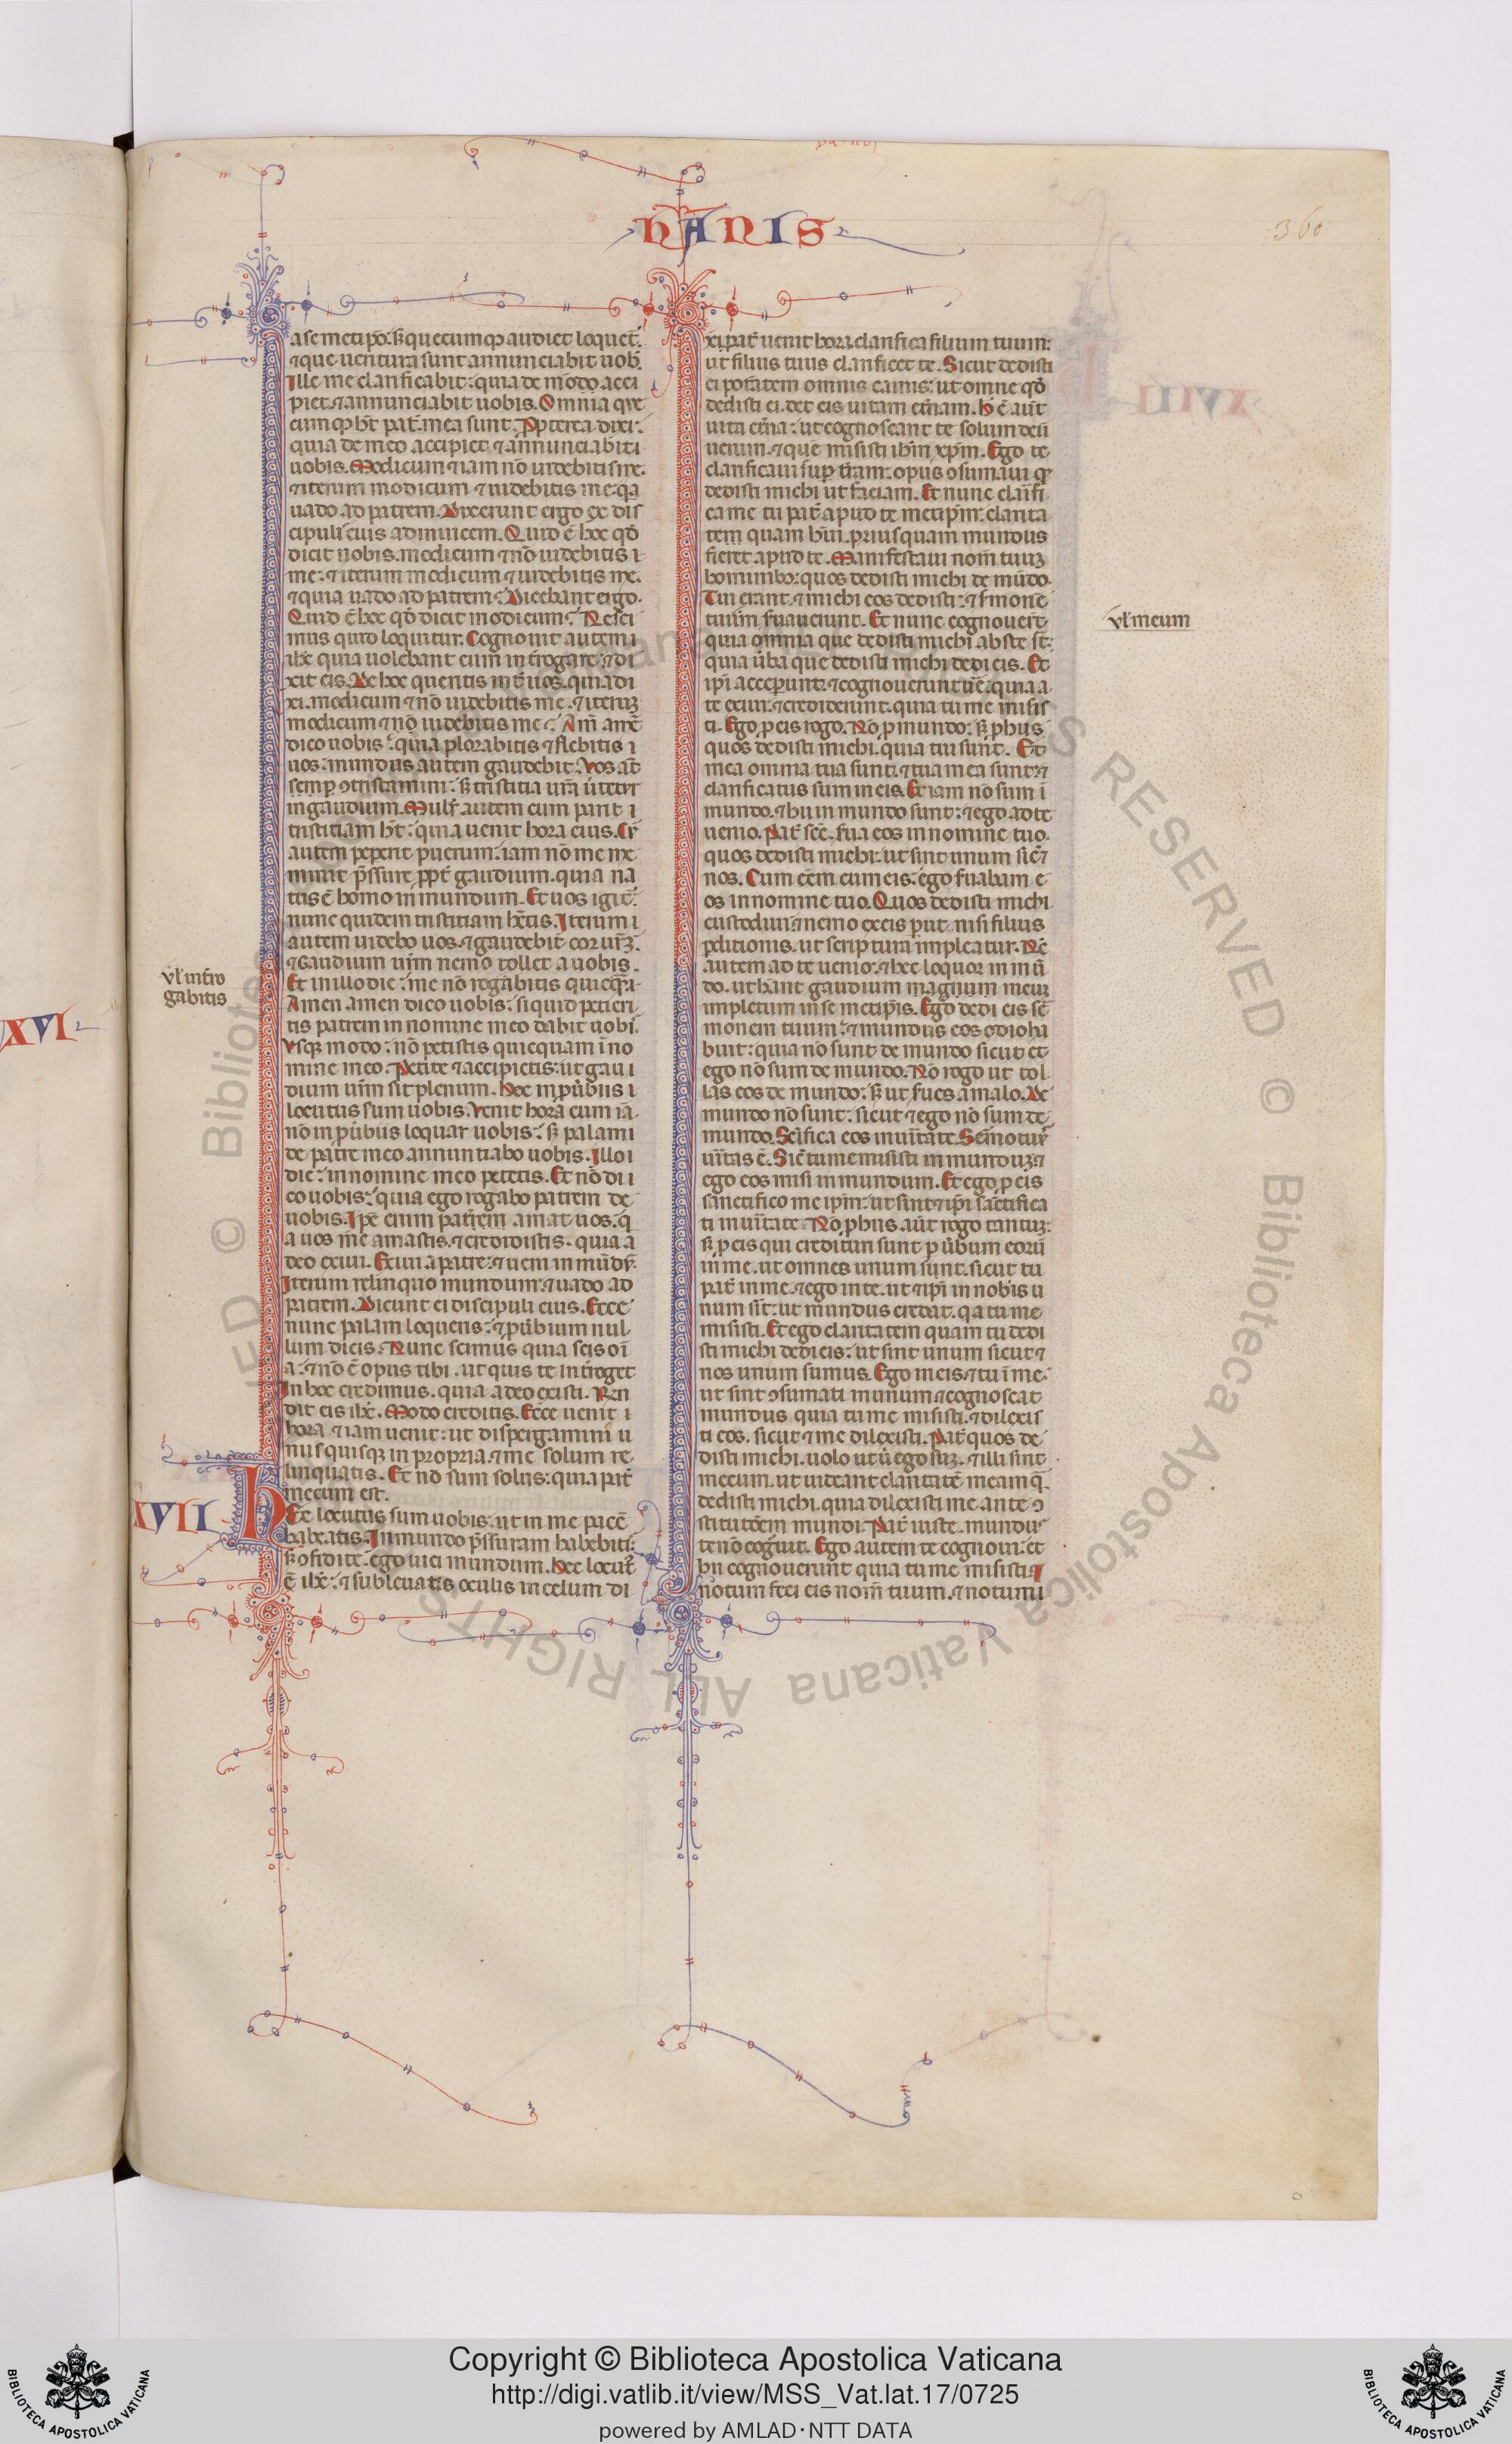 HANIS
360
a se metipō. sꝫ quecumqꝫ audiet loquet᷑.
⁊ que uentura sunt annunciabit uob̄.
Ille me clarificabit: quia de meo acci
piet. ⁊ annunciabit uobis. Omnia que
cumqꝫ hꝫ pat᷑. mea sunt. Ppterea dixi:
quia de meo accipiet ⁊ annunciabit
uobis. Modicum ⁊ iam nō uidebitis me.
⁊ iterum modicum ⁊ uidebitis me: qa
uado ad patrem. Dixerunt ergo ex dis
cipulis eius adinuicem. Quid ē hoc qd̄
dicit nobis. modicum ⁊ nō uidebitis
me: ⁊ iterum modicum ⁊ uidebitis me.
⁊ quia uado ad patrem? Dicebant ergo.
Quid ē hoc qd̄ dicit modicum? Nesci
mus quid loquitur. Cognouit autem
ihc̄ quia uolebant eum int̄rogare: ⁊ di
xit eis. De hoc queritis int̄ uos. quia di
xi. modicum ⁊ nō uidebitis me. ⁊ iterum
modicum ⁊ nō uidebitis me? Am̄ amē
dico uobis: quia plorabitis ⁊ flebitis
uos: mundus autem gaudebit. Vos aūt
semp ꝯtristamini: sꝫ tristitia ur̄a ūtetur
in gaudium. Mulier autem cum parit
tristitiam hꝫ: quia uenit hora eius. Cū
autem peperit puerum: iam nō me me
minit p̄ssure ppt̄ gaudium. quia na
tus ē homo in mundum. Et uos igit᷑.
nunc quidem tristitiam hētis. Iterum
autem uidebo uos. ⁊ gaudebit cor ur̄m.
⁊ Gaudium ur̄m nemo tollet a uobis.
Et in illo die: me nō rogabitis quicq̄.
Amen amen dico uobis: si quid petieri
tis patrem in nomine meo dabit uobis.
Vsqꝫ modo: nō petistis quicquam ī no
mine meo. Petite ⁊ accipietis: ut gau
dium ur̄m sit plenum. Hec in pūbiis
locutus sum uobis. Venit hora cum iā
nō in pūbiis loquar uobis: sꝫ palam
de patre meo annuntiabo uobis. Illo
die: in nomine meo petetis. Et nō di
co uobis: quia ego rogabo patrem de
uobis. Ipse enim pater̄ amat uos. q
a uos me amastis. ⁊ credidistis. quia a
deo exiui. Exiui a patre: ⁊ ueni in mūdū.
Iterum relinquo mundum: ⁊ uado ad
patrem. Dicunt ei discipuli eius. Ecce
nunc palam loqueris: ⁊ pūbium nul
lum dicis. Nunc scimus quia scis oī
a: ⁊ nō ē opus tibi. ut quis te int̄roget
In hoc credimus. quia a deo existi. Rn̄
dit eis ihc̄. Modo creditis. Ecce uenit
hora ⁊ iam uenit: ut dispergamini u
nusquisqꝫ in propria. ⁊ me solum re
linquatis. Et nō sum solus: quia pat᷑
mecum est.
Hec locutus sum uobis: ut in me pacē
habeatis. In mundo p̄ssuram habebitis:
sꝫ ꝯfidite. ego uici mundum. Hec locut᷑
ē ihc̄: ⁊ subleuatis oculis in celum di
vl̄ int̄ro
gabitis
XVI
XVII
xi. pat᷑ uenit hora. clarifica filium tuum:
ut filius tuus clarificet te. Sicut dedisti
ei potātem omnis carnis: ut omne qd̄
dedisti ei. det eis uitam et̄nam. H̄ ē aut̄
uita et̄na: ut cognoscant te solum deū
uerum. ⁊ quē misisti ihm̄ xpm̄. Ego te
clarificaui sup t̄ram: opus ꝯsumaui qd̄
dedisti michi ut faciam. Et nunc clarifi
ca me tu pat᷑ apud te metipm̄: clarita
tem quam hūi. priusquam mundus
fieret apud te. Manifestaui nom̄ tuuꝫ
hominibꝫ: quos dedisti michi de mūdo.
Tui erant. ⁊ michi eos dedisti: ⁊ s̄monē
tuum s̄uauerunt. Et nunc cognouert̄
quia omnia que dedisti michi abs te st̄:
quia ūba que dedisti michi dedi eis. Et
ipi acceperunt. ⁊ cognouerunt ūe: quia a
te exiui: ⁊ crediderunt. quia tu me misis
ti. Ego p eis rogo. Nō p mundo: sꝫ p hiis
quos dedisti michi. quia tui sunt. Et
mea omnia tua sunt. ⁊ tua mea sunt: ⁊
clarificatus sum in eis. Et iam nō sum ī
mundo. ⁊ hii in mundo sunt: ⁊ ego ad te
uenio. Pat᷑ sc̄e. s̄ua eos in nomine tuo.
quos dedisti michi: ut sint unum sic̄ ⁊
nos. Cum eēm cum eis: ego s̄uabam e
os in nomine tuo. Quos dedisti michi
custodiui: ⁊ nemo ex eis p̄iit. nisi filius
pditionis. ut scriptura impleatur. Nc̄
autem ad te uenio: ⁊ hec loquor in mū
do. ut h̄ant gaudium magnum meuꝫ
impletum in se metip̄is. Ego dedi eis s̄
monem tuum: ⁊ mundus eos odio ha
buit: quia nō sunt de mundo sicut et
ego nō sum de mundo. Nō rogo ut tol
las eos de mundo: sꝫ ut s̄ues a malo. De
mundo nō sunt: sicut ⁊ ego nō sum de
mundo. Sc̄ifica eos in uītate. Sermo tuus
uītas ē. Sic̄ tu me misisti in munduꝫ: ⁊
ego eos misi in mundum. Et ego p eis
sanctifico me ipm̄: ut sint ⁊ ipi sanctifica
ti in uītate. Nō p hiis aut̄ rogo tantuꝫ:
sꝫ p eis qui credituri sunt p ūbum eorū
in me. ut omnes unum sunt. sicut tu
pat᷑ in me. ⁊ ego in te. ut ⁊ ipi in nobis u
num sīt: ut mundus credat. qa tu me
misisti. Et ego claritatem quam tu dedi
sti michi dedi eis: ut sint unum sicut ⁊
nos unum sumus. Ego in eis. ⁊ tu ī me:
ut sint ꝯsumati in unum ⁊ cognoscat
mundus quia tu me misisti. ⁊ dilexis
ti eos. sicut ⁊ me dilexisti. Pat᷑ quos de
disti michi. uolo ut ubi ego suꝫ. ⁊ illi sint
mecum. ut uideant claritatē meam q̄
dedisti michi. quia dilexisti me ante ꝯ
stitutōem mundi. Pat᷑ iuste. mundus
te nō cognouit. Ego autem te cognoui: et
hii cognouerunt quia tu me misisti. ⁊
notum feci eis nom̄ tuum. ⁊ notum
vl̄ meum
Copyright © Biblioteca Apostolica Vaticana
http://digi.vatlib.it/view/MSS_Vat.lat.17/0725
powered by AMLAD·NTT DATA
BIBLIOTECA APOSTOLICA VATICANA
BIBLIOTECA APOSTOLICA VATICANA